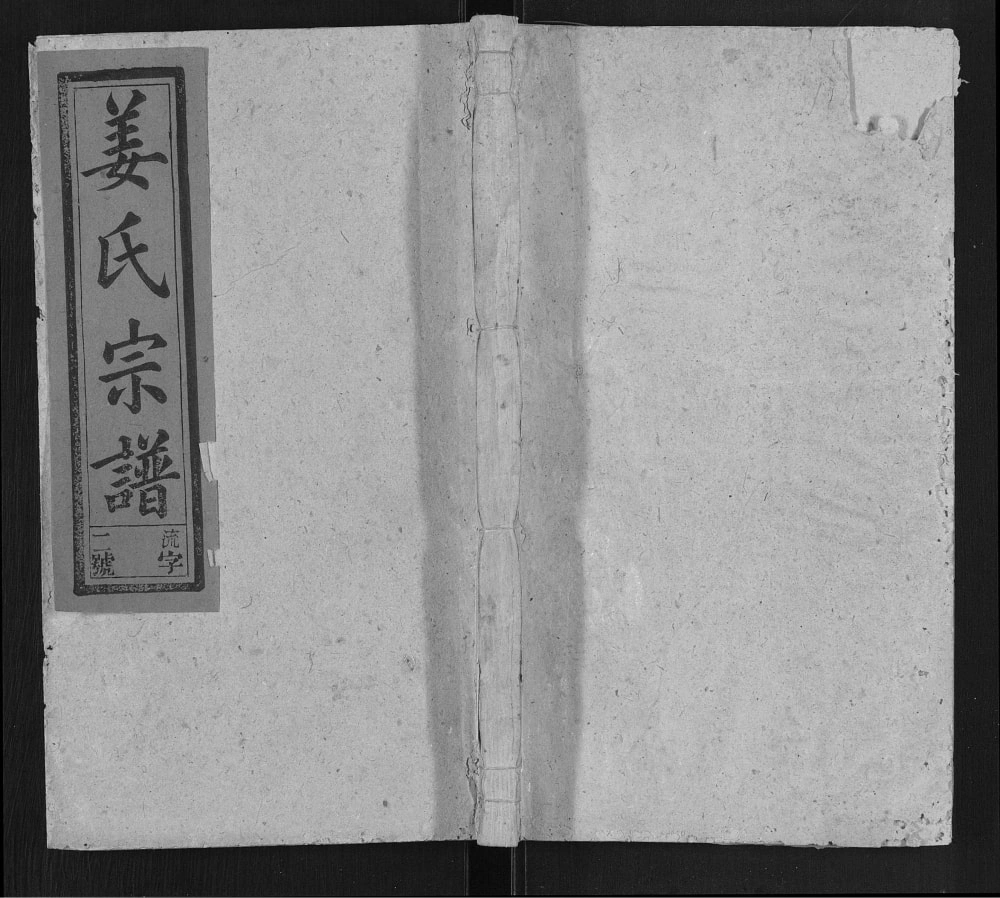 姜氏宗譜
流字
二號